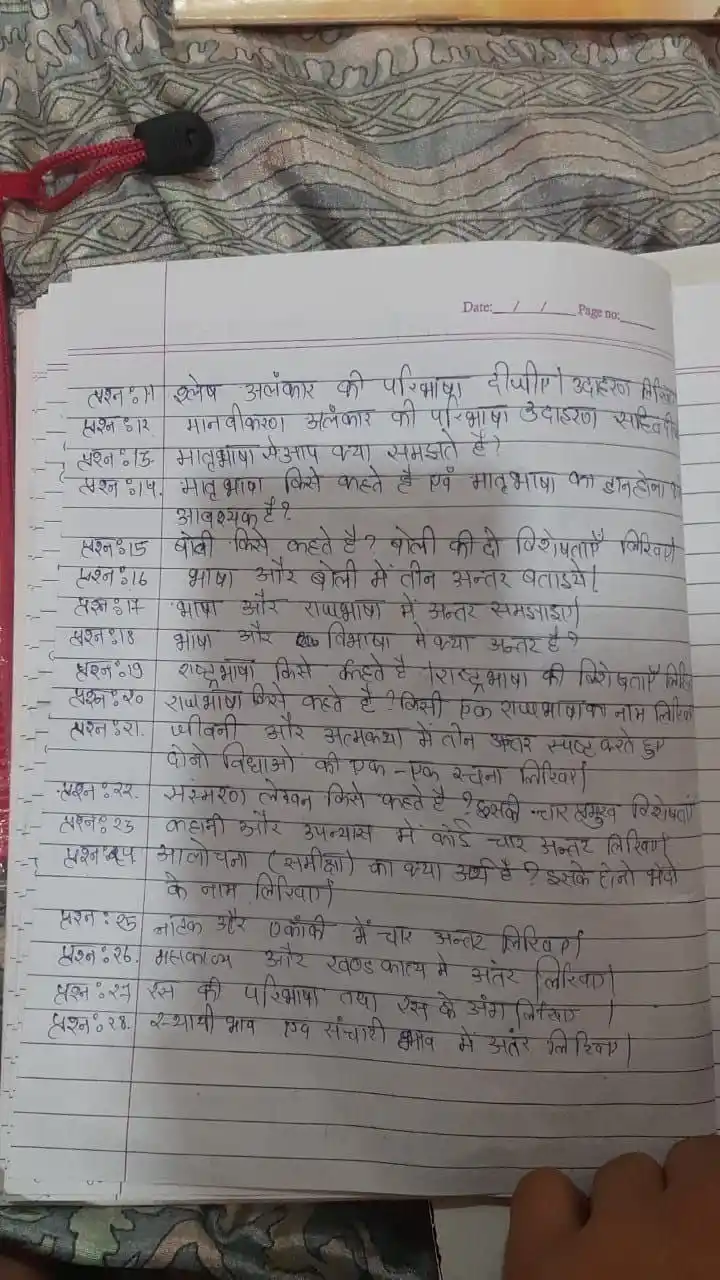 Date: / / Page no:
प्रश्न:11 श्लेष अलंकार की परिभाषा दीजीए। उदाहरण
प्रश्न:१२ मानवीकरण अलंकार की परिभाषा उदाहरण सहित
प्रश्न:१३. मातृभाषा से आप क्या समझते है?
प्रश्न:१४. मातृभाषा किसे कहते है एवं मातृभाषा का ज्ञान होना
आवश्यक है?
प्रश्न:15 बोली किसे कहते है? बोली की दो विशेषताएँ लिखिए।
प्रश्न:16 भाषा और बोली में तीन अन्तर बताइये।
प्रश्न:17 भाषा और राजभाषा में अन्तर समझाइए।
प्रश्न:18 भाषा और विभाषा मे क्या अन्तर है?
प्रश्न:19 राष्ट्रभाषा किसे कहते है। राष्ट्रभाषा की विशेषताएँ
प्रश्न:२० राजभाषा किसे कहते है? किसी एक राजभाषा का नाम
प्रश्न:२1. जीवनी और आत्मकथा में तीन अन्तर स्पष्ट करते हुए
दोनो विधाओं की एक-एक रचना लिखिए।
प्रश्न:२२. संस्मरण लेखन किसे कहते है? इसकी चार प्रमुख विशेषताएँ
प्रश्न:२३ कहानी और उपन्यास में कोई चार अन्तर लिखिए।
प्रश्न:२४ आलोचना (समीक्षा) का क्या अर्थ है? इसके दोनो भेदो
के नाम लिखिए।
प्रश्न:२5 नाटक और एकाँकी में चार अन्तर लिखिए।
प्रश्न:२6. महाकाव्य और खण्डकाव्य मे अंतर लिखिए।
प्रश्न:२7 रस की परिभाषा तथा रस के अंग लिखिए।
प्रश्न:२8. स्थायी भाव एवं संचारी भाव में अंतर लिखिए।